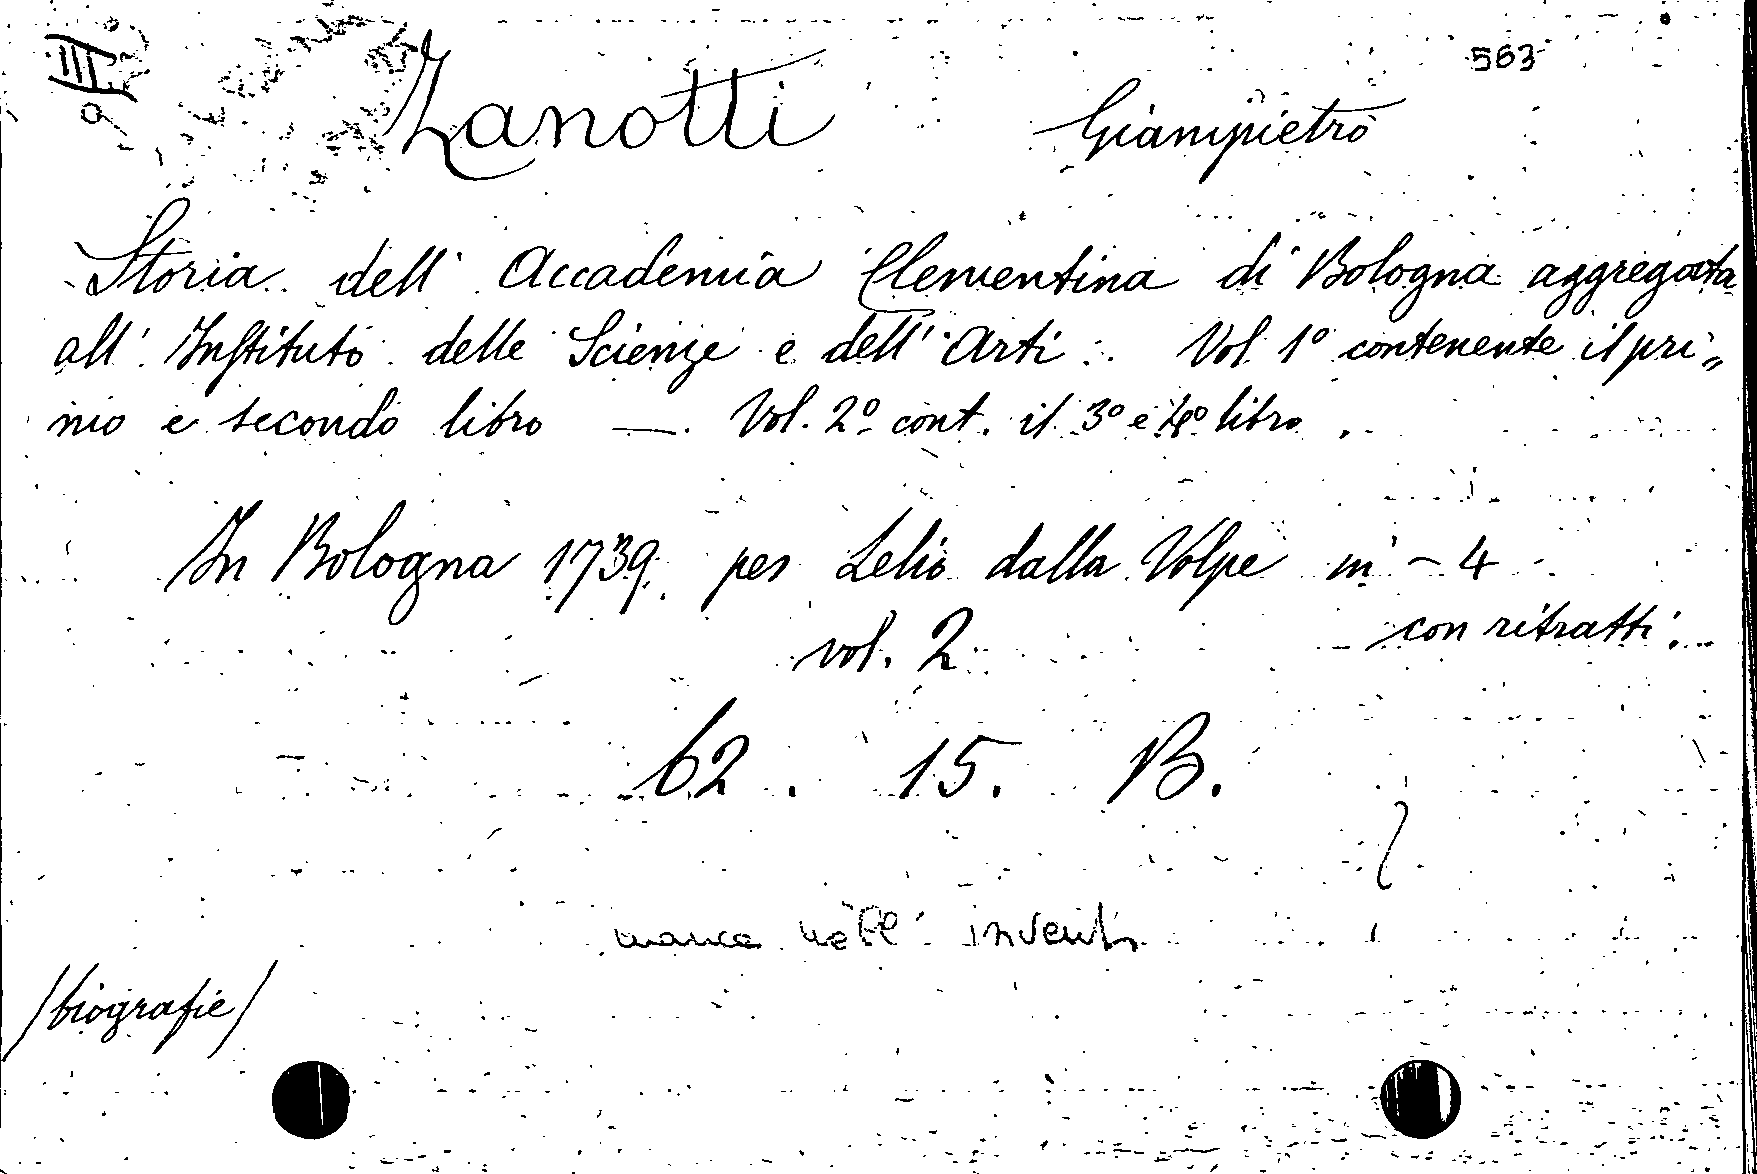 III
563
Zanotti Giampietro
Storia dell' Accademia Clementina di Bologna aggregata
all' Instituto delle Scienze e dell' Arti : Vol 1º contenente il pri„
mo e secondo libro — Vol. 2º cont. il 3º e 4º libro .
In Bologna 1739. per Lelio dalla Volpe in - 4
con ritratti.
vol. 2
62 . 15. B.
manca nell'
/biografie/